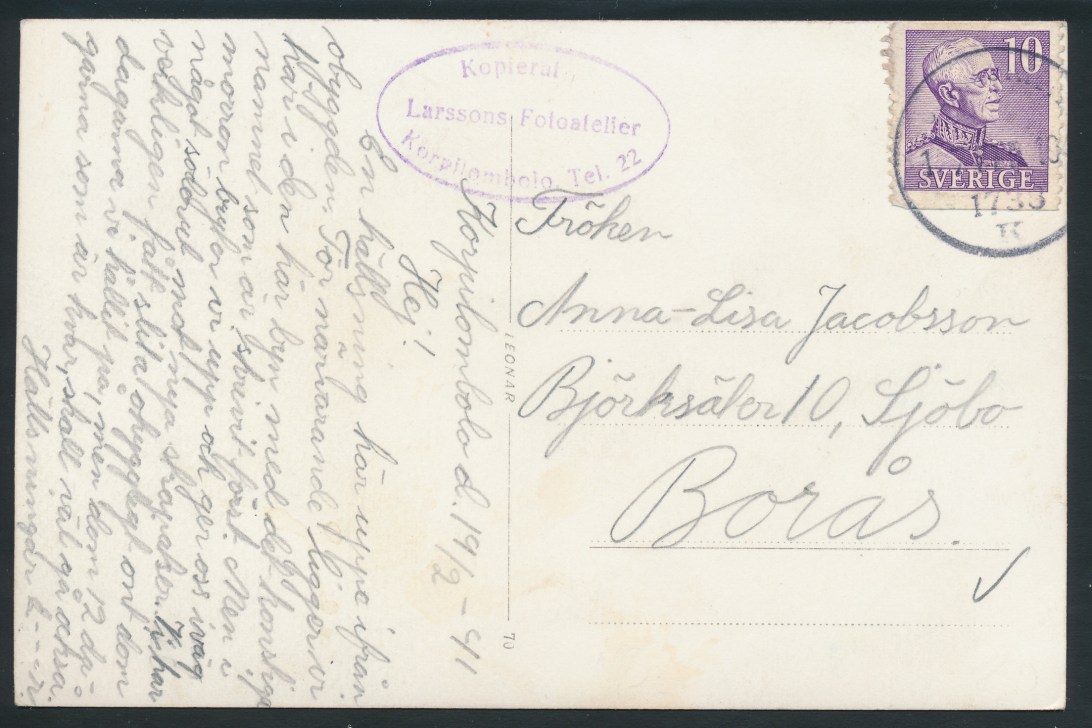 Korpilombolo d. 19/2 – 41
Hej!
En hälsning här uppe ifrån
obygden. För närvarande ligger vi
här i den här byn med det konstiga
namnet som är skrivit först. Men i
morron bryter vi upp och ger oss iväg
något söderut mot nya strapatser. Vi har
verkligen fått slita ohyggligt ont dom
dagarna vi hållit på, men dom 12 da-
garna som är kvar, skall väl gå också.
Hälsningar
Kopierat
Larssons Fotoatelier
Korpilombolo. Tel. 22
LEONAR
70
10
SVERIGE
1733
K
Fröken
Anna-Lisa Jacobsson
Björksäter 10, Sjöbo
Borås.